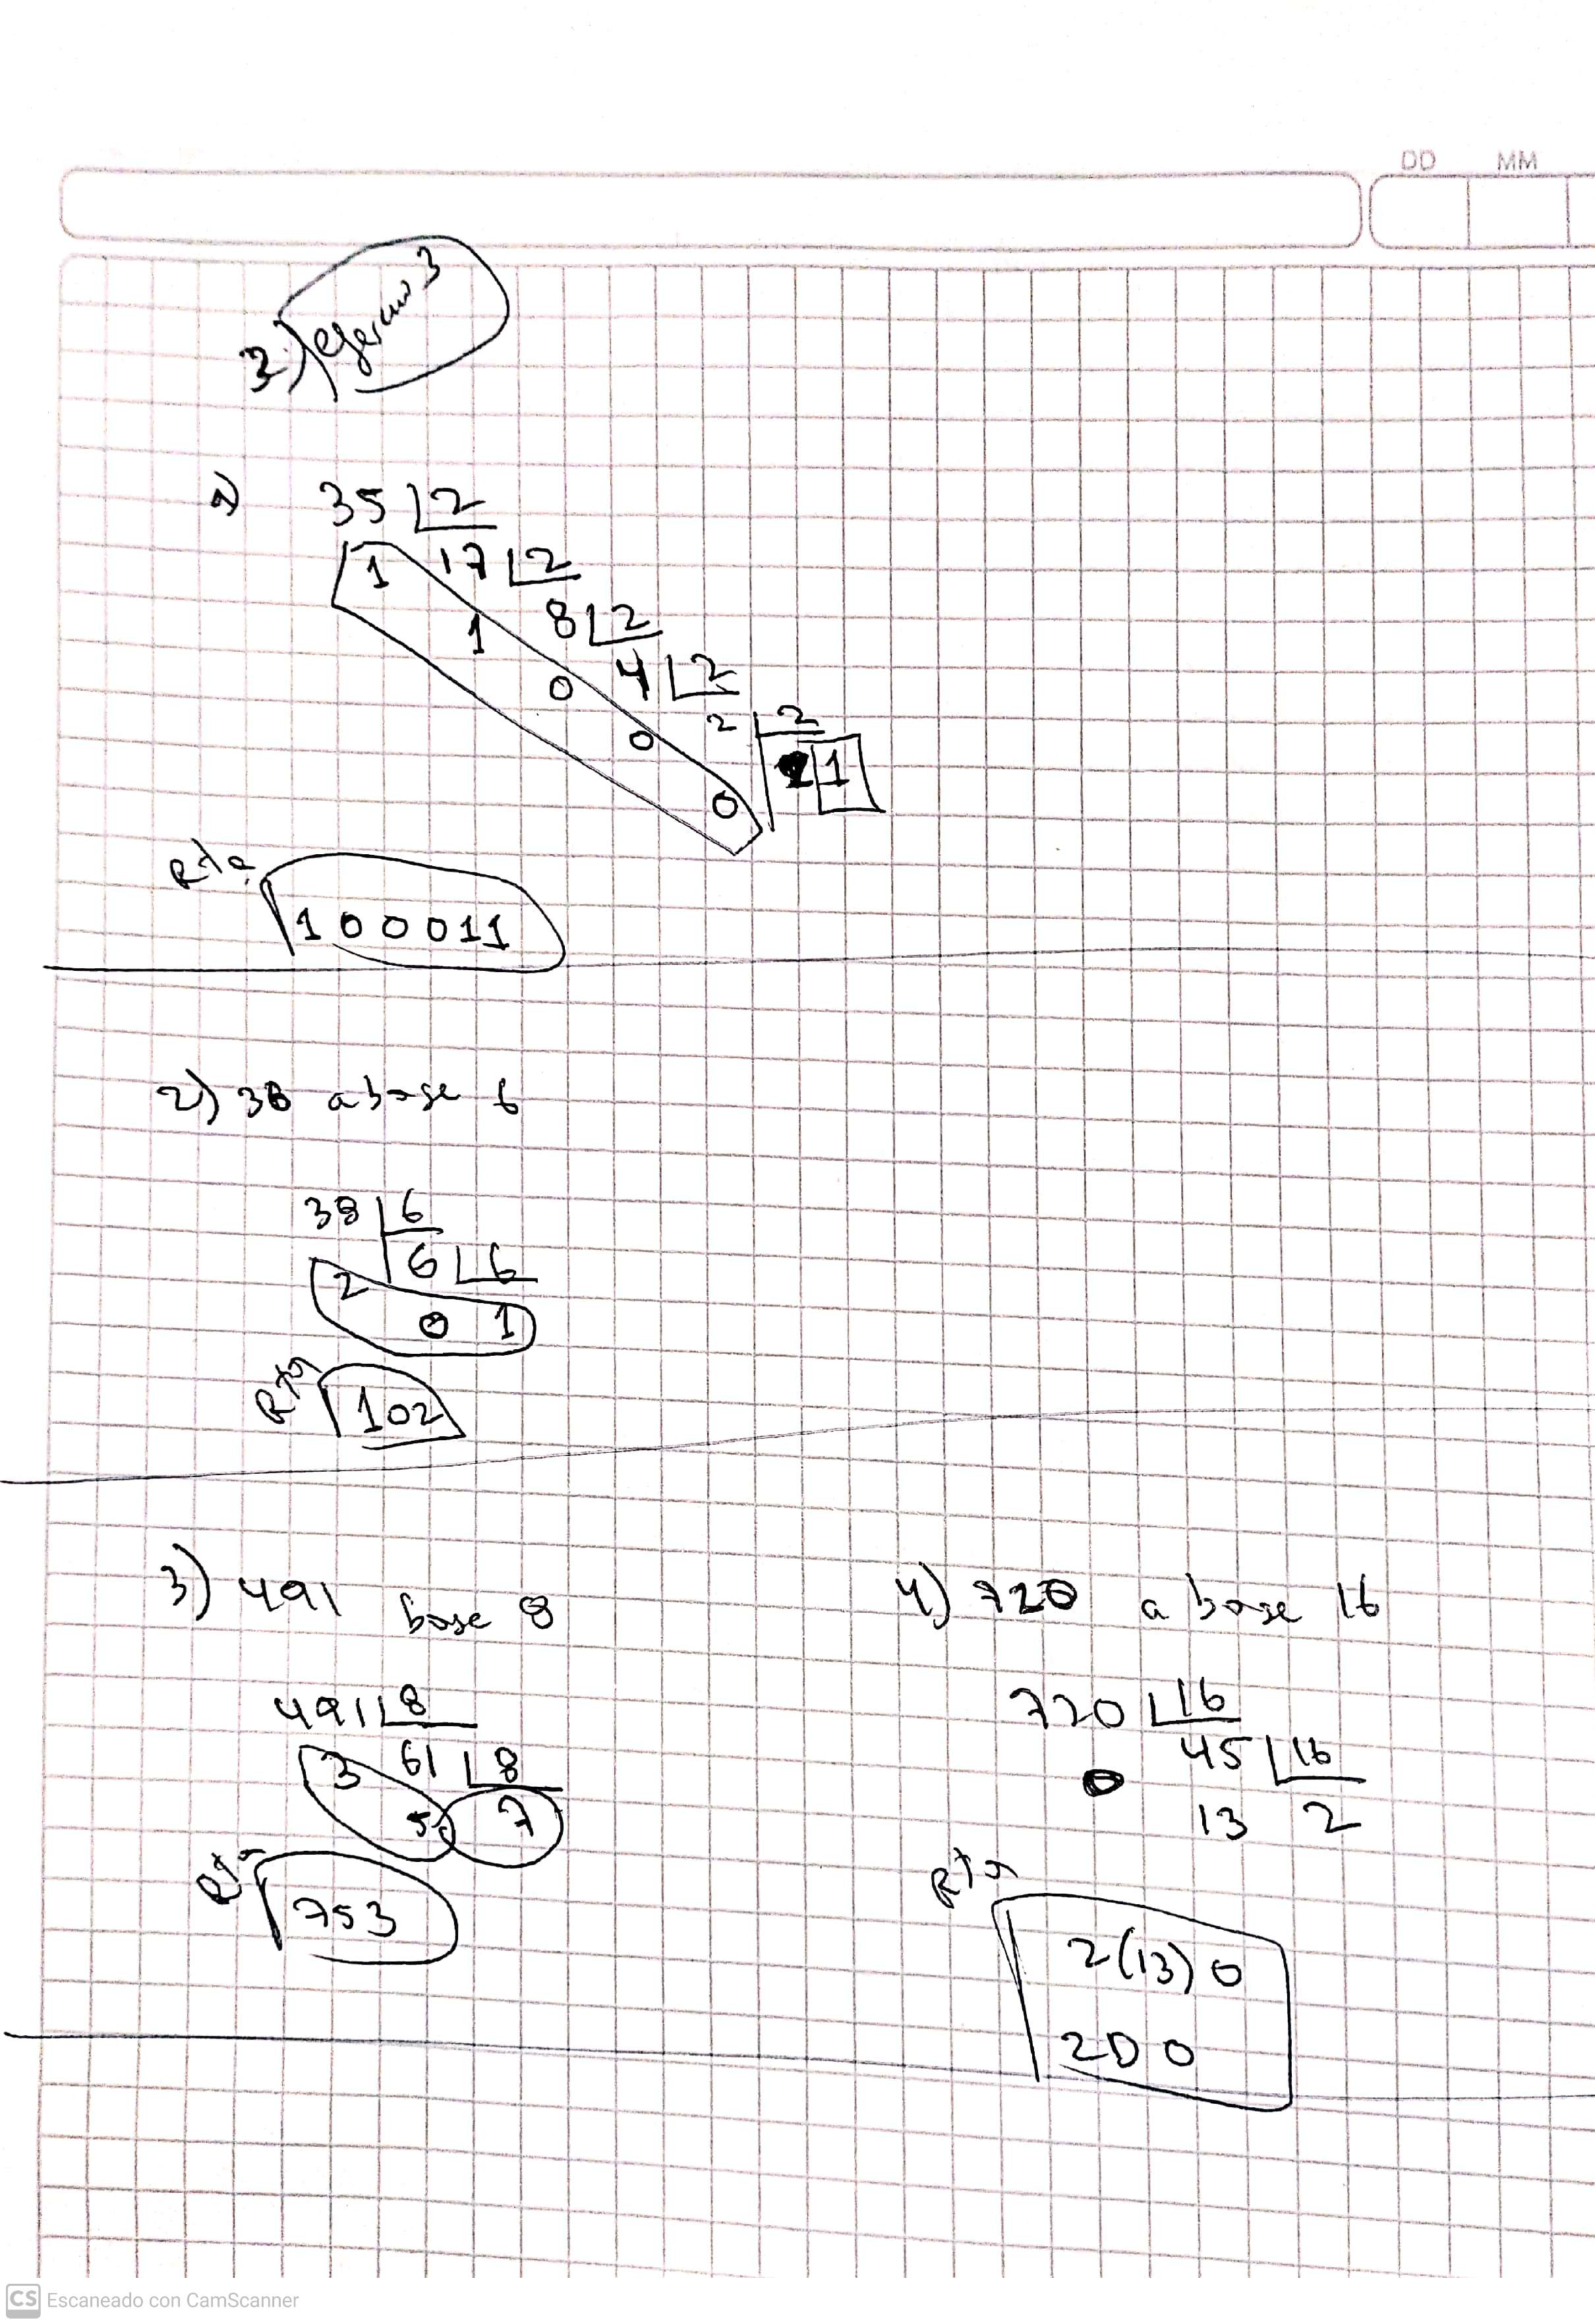 DD MM
3.) ejercicio 3
1) 35 | 2
1 17 | 2
1 8 | 2
0 4 | 2
0 2 | 2
0 1
Rta
100011
2) 38 a base 6
38 | 6
2 6 | 6
0 1
Rta 102
3) 491 base 8
491 | 8
3 61 | 8
5 7
Rta 753
4) 720 a base 16
720 | 16
0 45 | 16
13 2
Rta
2(13)0
2D0
CS Escaneado con CamScanner